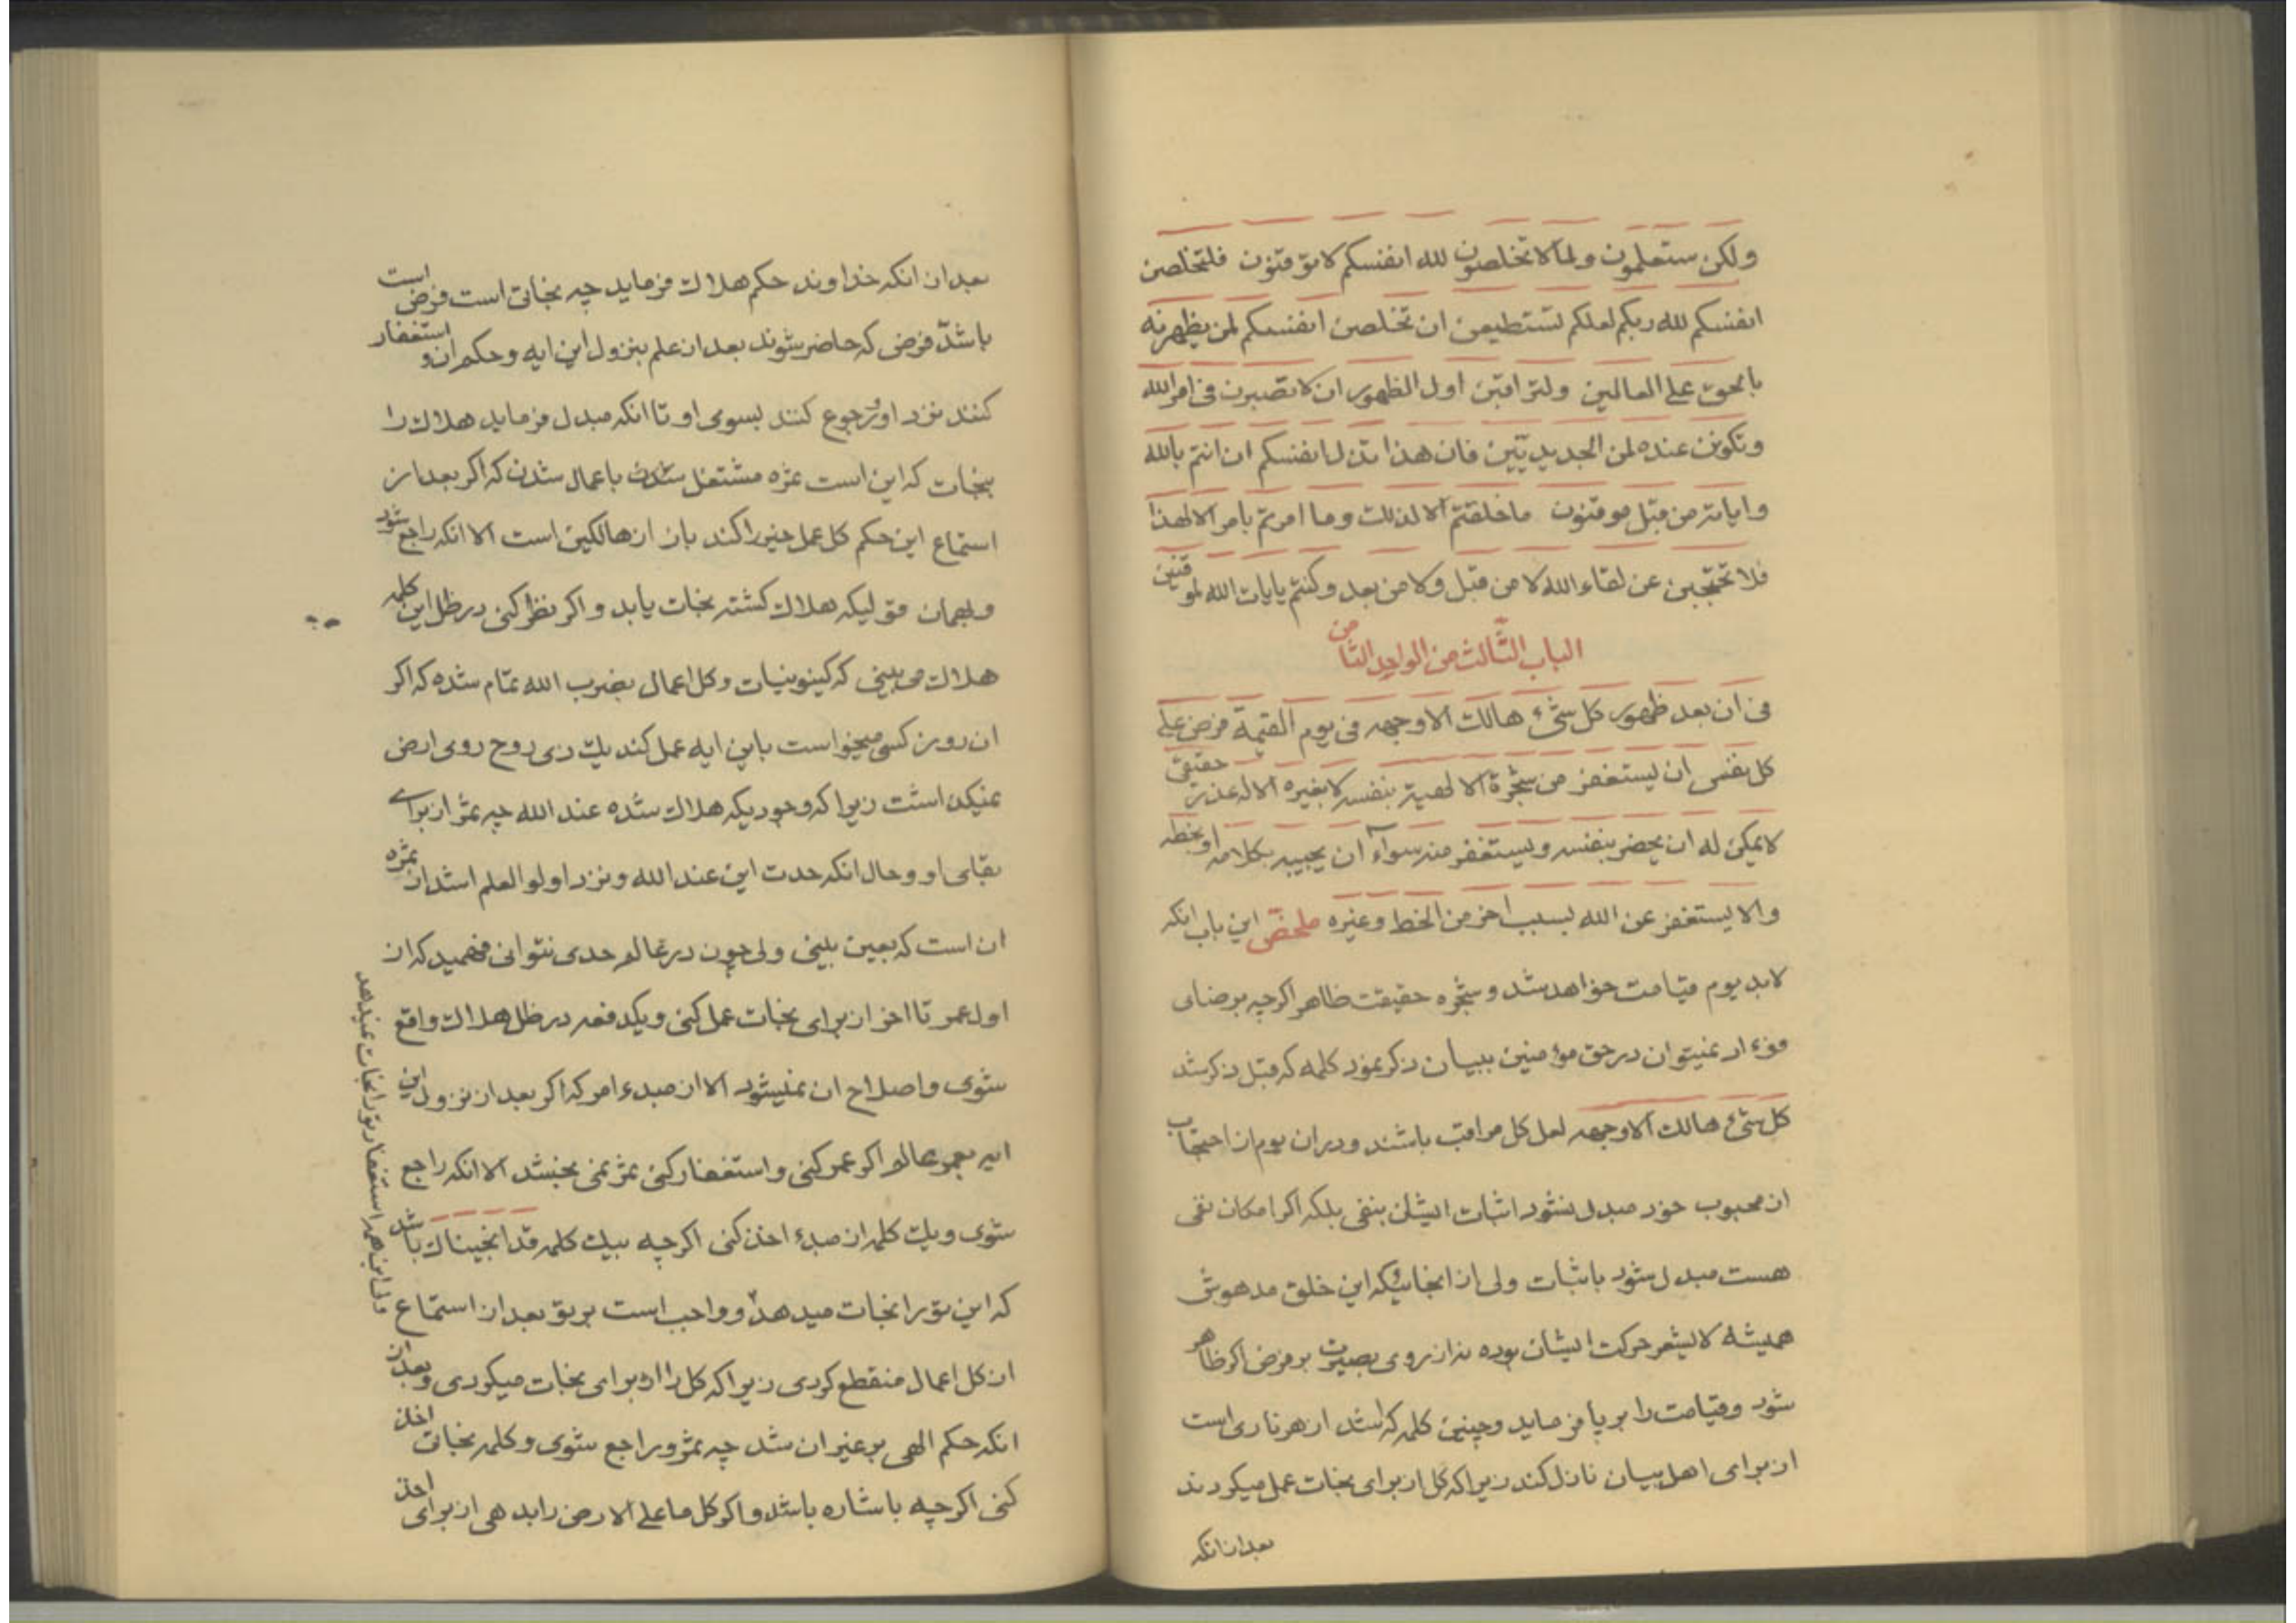 ولکن ستعلمون ولما لا تخلصون لله انفسکم لا توقنون فلتخلصن
انفسکم لله ربکم لعلکم تستطیعن ان تخلصن انفسکم لمن یظهرنه
بالحق علی العالمین ولتراقبن اول الظهور ان لا تصبرن فی امر الله
وتکونن عنده لمن الجدیدیین فان هذا تدل انفسکم ان انتم بالله
وایاته من قبل موقنون ما خلقتم الا لذلک وما امرتم بامر الا لهذا
فلا تحتجبن عن لقاء الله لا من قبل ولا من بعد وکنتم بایات الله لموقنین
الباب الثالث من الواحد الثامن
فی ان بعد ظهور کل شیء هالک الا وجهه فی یوم القیمة فرض علی
کل نفس ان یستغفر من شجرة الالهیة بنفسه لا بغیره الا له عذر حقیقی
لا یمکن له ان یحضر بنفسه ویستغفر منه سوآء ان یجیبه بکلامه او بخطه
والا یستغفر عن الله بسبب اخر من الخط وغیره ملخص این باب انکه
لابد یوم قیامت خواهد شد و شجره حقیقت ظاهر اگرچه بر رضای
فؤاد نمیتوان در حق مؤمنین ببیان ذکر نمود کلمه که قبل ذکر شد
کل شیء هالک الا وجهه لعل کل مراقب باشند و در ان یوم از احتجاب
از محبوب خود مبدل نشود اثبات ایشان بنفی بلکه اگر امکان نفی
هست مبدل شود باثبات ولی از انجائیکه این خلق مدهوش
همیشه لا یشعر حرکت ایشان بوده نه از روی بصیرت بر فرض اکر ظاهر
شود و قیامت را بر پا فرماید و چنین کلمه که اشد از هر ناری است
از برای اهل بیان نازل کند زیرا که کل از برای نجات عمل میکردند
بعد از انکه
بعد از انکه خداوند حکم هلاک فرماید چه نجاتی است فرض است
باشد فرض که حاضر شوند بعد از علم بنزول این ایه و حکم ان و استغفار
کنند نزد او و رجوع کنند بسوی او تا انکه مبدل فرماید هلاک را
بنجات که این است ثمره مشتغل شدن باعمال شدن که اکر بعد از
استماع این حکم کل عمل خیر را کند باز از هالکین است الا انکه راجع شود
و بهمان قولیکه هلاک کشته نجات یابد و اکر نظر کنی در ظل این کلمه
هلاک می بینی که کینونیات و کل اعمال بضرب الله تمام شده که اکر
ان روز کسی میخواست باین ایه عمل کند یک ذی روح روی ارض
نمیکذاشت زیرا که وجودیکه هلاک شده عند الله چه ثمر از برای
بقای او و حال انکه حدت این عند الله و نزد اولو العلم اشد از ثمره
ان است که بعین بینی ولی چون در عالم حدی نتوانی فهمید که از
اول عمر تا اخر از برای نجات عمل کنی و یکدفعه در ظل هلاک واقع
شوی و اصلاح ان نمیشود الا از مبدء امر که اکر بعد از نزول این
ایه بعمر عالم اکر عمر کنی و استغفار کنی ثمر نمی بخشد الا انکه راجع
شوی و یک کلمه از مبدء اخذ کنی اکرچه بیک کلمه قد انجیناک باشد
که این تو را نجات میدهد و واجب است بر تو بعد از استماع
از کل اعمال منقطع کردی زیرا که کل را از برای نجات میکردی و بعد از
انکه حکم الهی بر غیر ان شد چه ثمر و راجع شوی و کلمه نجات اخذ
کنی اکرچه باشاره باشد و اکر کل ما علی الارض را بدهی از برای اخذ
ولی این همه استغفار تو را نجات نمیدهد